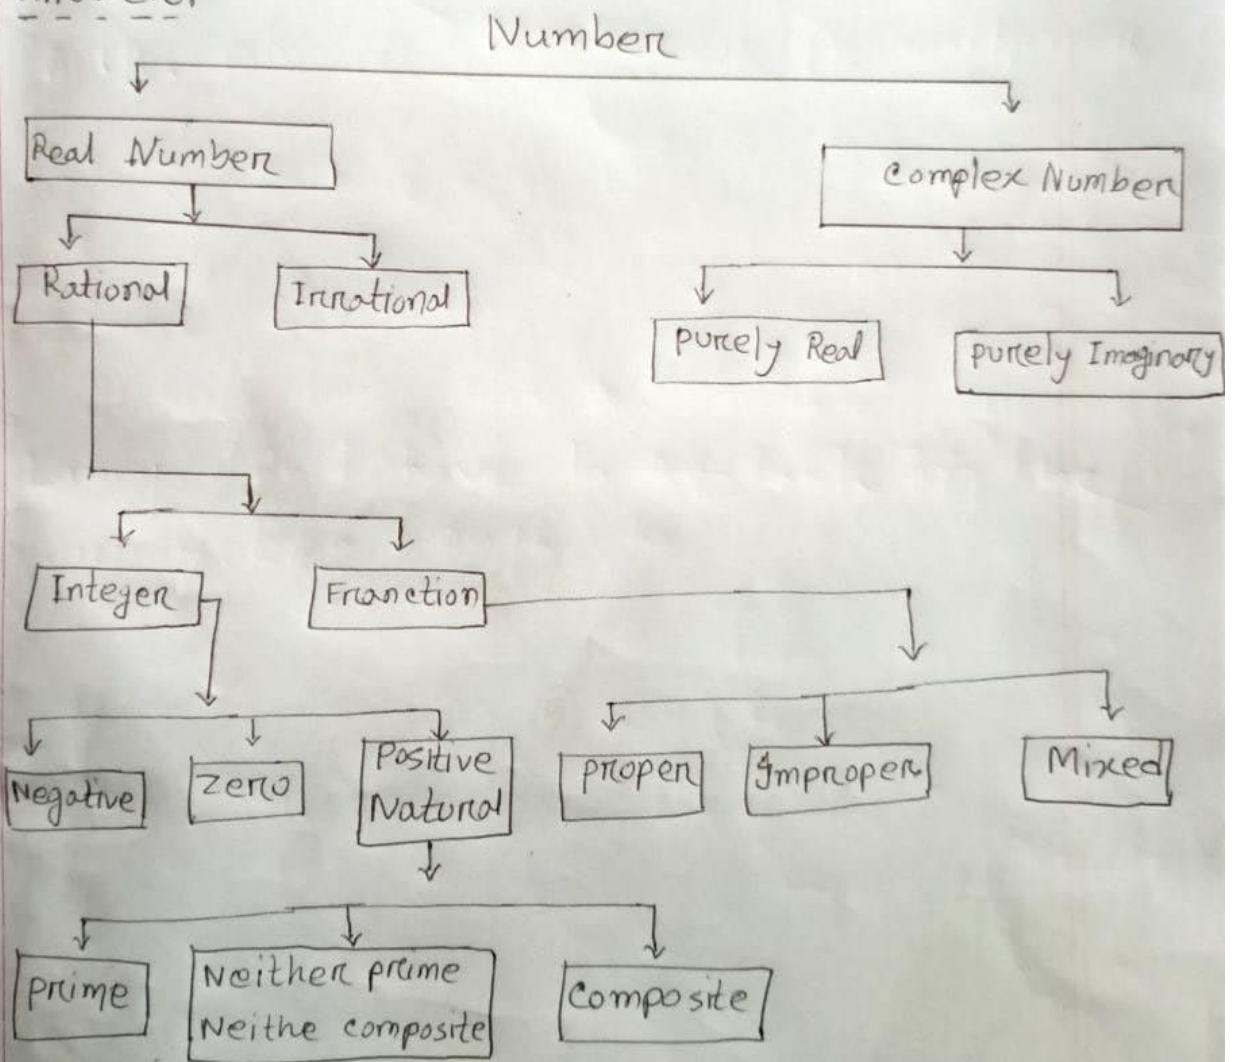 Number
Real Number
Complex Number
Rational
Irrational
Purely Real
Purely Imaginary
Integer
Franction
Negative
Zero
Positive
Natural
Proper
Improper
Mixed
Prime
Neither prime
Neithe composite
Composite